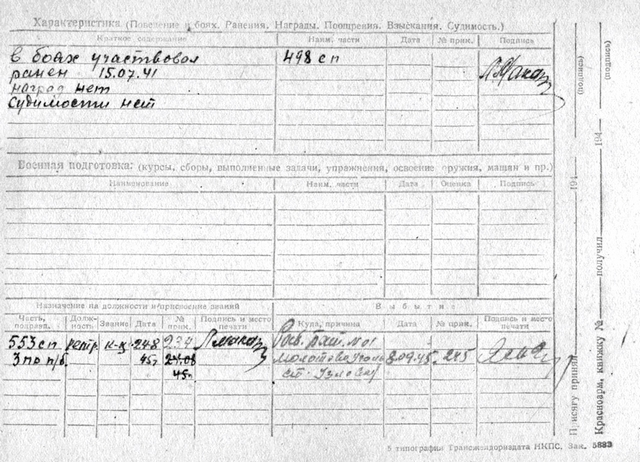 Характеристика (Поведение в боях. Ранения. Награды. Поощрения. Взыскания. Судимость.)
Краткое содержание Наим. части Дата № прик. Подпись
в боях участвовал 498 сп
ранен 15.07.41
наград нет
судимости нет
Военная подготовка: (курсы, сборы, выполненные задачи, упражнения, освоение оружия, машин и пр.)
Наименование Наим. части Дата Оценка Подпись
Назначение на должности и присвоение званий Выбытие
Часть, подразд. Должность Звание Дата № прик. Подпись и место печати Куда, причина Дата № прик. Подпись и место печати
553 сп к-ц 24.8 234
3 по п/б 45г. 24.08 8.09.45 245
45г. ст.
6 типография Трансжелдориздата НКПС. Зак. 5883
(подпись)
Присягу принял 194
(подпись)
Красноарм. книжку № получил 194